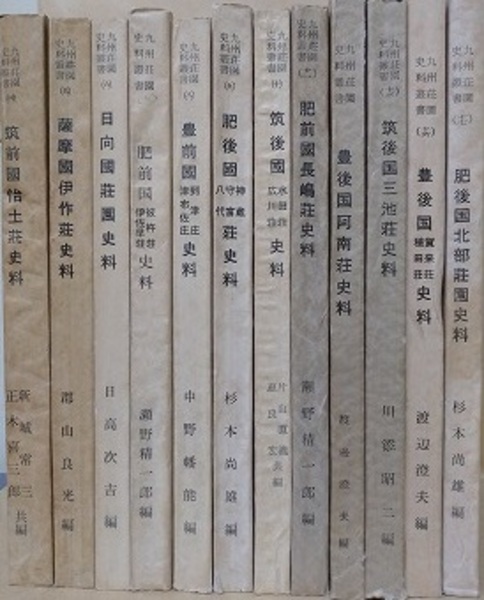 九州荘園
史料叢書
筑前國怡土莊史料
新城常三
正木喜三郎
共編
九州荘園
史料叢書
(四)
薩摩國伊作莊史料
郡山良光編
九州荘園
史料叢書
日向國莊園史料
日高次吉編
九州荘園
史料叢書
肥前国
彼杵荘
伊佐早荘
史料
瀬野精一郎編
九州荘園
史料叢書
豊前國
到津庄
津布佐庄
史料
中野幡能編
九州荘園
史料叢書
肥後國
神蔵
守富
八代
莊史料
杉本尚雄編
九州荘園
史料叢書
(十)
筑後國
水田荘
広川荘
史料
片山直義
恵良宏
編
九州荘園
史料叢書
肥前國長嶋莊史料
瀬野精一郎編
九州荘園
史料叢書
豊後国阿南荘史料
渡邊澄夫編
九州荘園
史料叢書
筑後国三池荘史料
川添昭二編
九州荘園
史料叢書
豊後国
賀来荘
植田荘
史料
渡辺澄夫編
九州荘園
史料叢書
肥後国北部荘園史料
杉本尚雄編